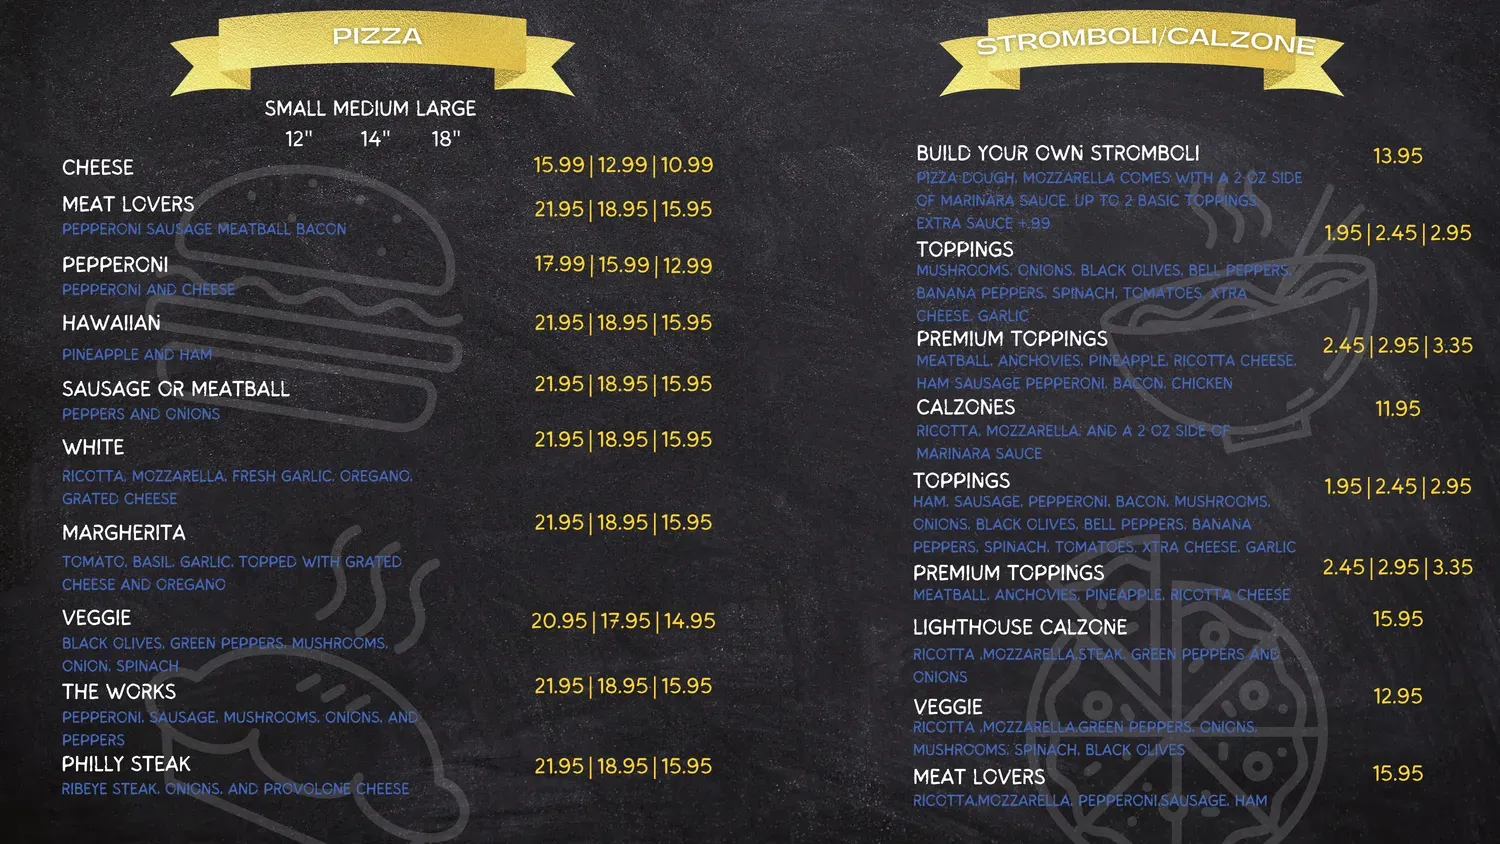 PIZZA
SMALL MEDIUM LARGE
12" 14" 18"
CHEESE 15.99|12.99|10.99
MEAT LOVERS 21.95|18.95|15.95
PEPPERONI SAUSAGE MEATBALL BACON
PEPPERONI 17.99|15.99|12.99
PEPPERONI AND CHEESE
HAWAIIAN 21.95|18.95|15.95
PINEAPPLE AND HAM
SAUSAGE OR MEATBALL 21.95|18.95|15.95
PEPPERS AND ONIONS
WHITE 21.95|18.95|15.95
RICOTTA, MOZZARELLA, FRESH GARLIC, OREGANO,
GRATED CHEESE
MARGHERITA 21.95|18.95|15.95
TOMATO, BASIL, GARLIC, TOPPED WITH GRATED
CHEESE AND OREGANO
VEGGIE 20.95|17.95|14.95
BLACK OLIVES, GREEN PEPPERS, MUSHROOMS,
ONION, SPINACH
THE WORKS 21.95|18.95|15.95
PEPPERONI, SAUSAGE, MUSHROOMS, ONIONS, AND
PEPPERS
PHILLY STEAK 21.95|18.95|15.95
RIBEYE STEAK, ONIONS, AND PROVOLONE CHEESE
STROMBOLI/CALZONE
BUILD YOUR OWN STROMBOLI 13.95
PIZZA DOUGH, MOZZARELLA COMES WITH A 2 OZ SIDE
OF MARINARA SAUCE. UP TO 2 BASIC TOPPINGS.
EXTRA SAUCE +.99
TOPPINGS 1.95|2.45|2.95
MUSHROOMS, ONIONS, BLACK OLIVES, BELL PEPPERS,
BANANA PEPPERS, SPINACH, TOMATOES, XTRA
CHEESE, GARLIC
PREMIUM TOPPINGS 2.45|2.95|3.35
MEATBALL, ANCHOVIES, PINEAPPLE, RICOTTA CHEESE,
HAM SAUSAGE PEPPERONI, BACON, CHICKEN
CALZONES 11.95
RICOTTA, MOZZARELLA, AND A 2 OZ SIDE OF
MARINARA SAUCE
TOPPINGS 1.95|2.45|2.95
HAM, SAUSAGE, PEPPERONI, BACON, MUSHROOMS,
ONIONS, BLACK OLIVES, BELL PEPPERS, BANANA
PEPPERS, SPINACH, TOMATOES, XTRA CHEESE, GARLIC
PREMIUM TOPPINGS 2.45|2.95|3.35
MEATBALL, ANCHOVIES, PINEAPPLE, RICOTTA CHEESE
LIGHTHOUSE CALZONE 15.95
RICOTTA ,MOZZARELLA,STEAK, GREEN PEPPERS AND
ONIONS
VEGGIE 12.95
RICOTTA ,MOZZARELLA,GREEN PEPPERS, ONIONS,
MUSHROOMS, SPINACH, BLACK OLIVES
MEAT LOVERS 15.95
RICOTTA,MOZZARELLA, PEPPERONI,SAUSAGE, HAM